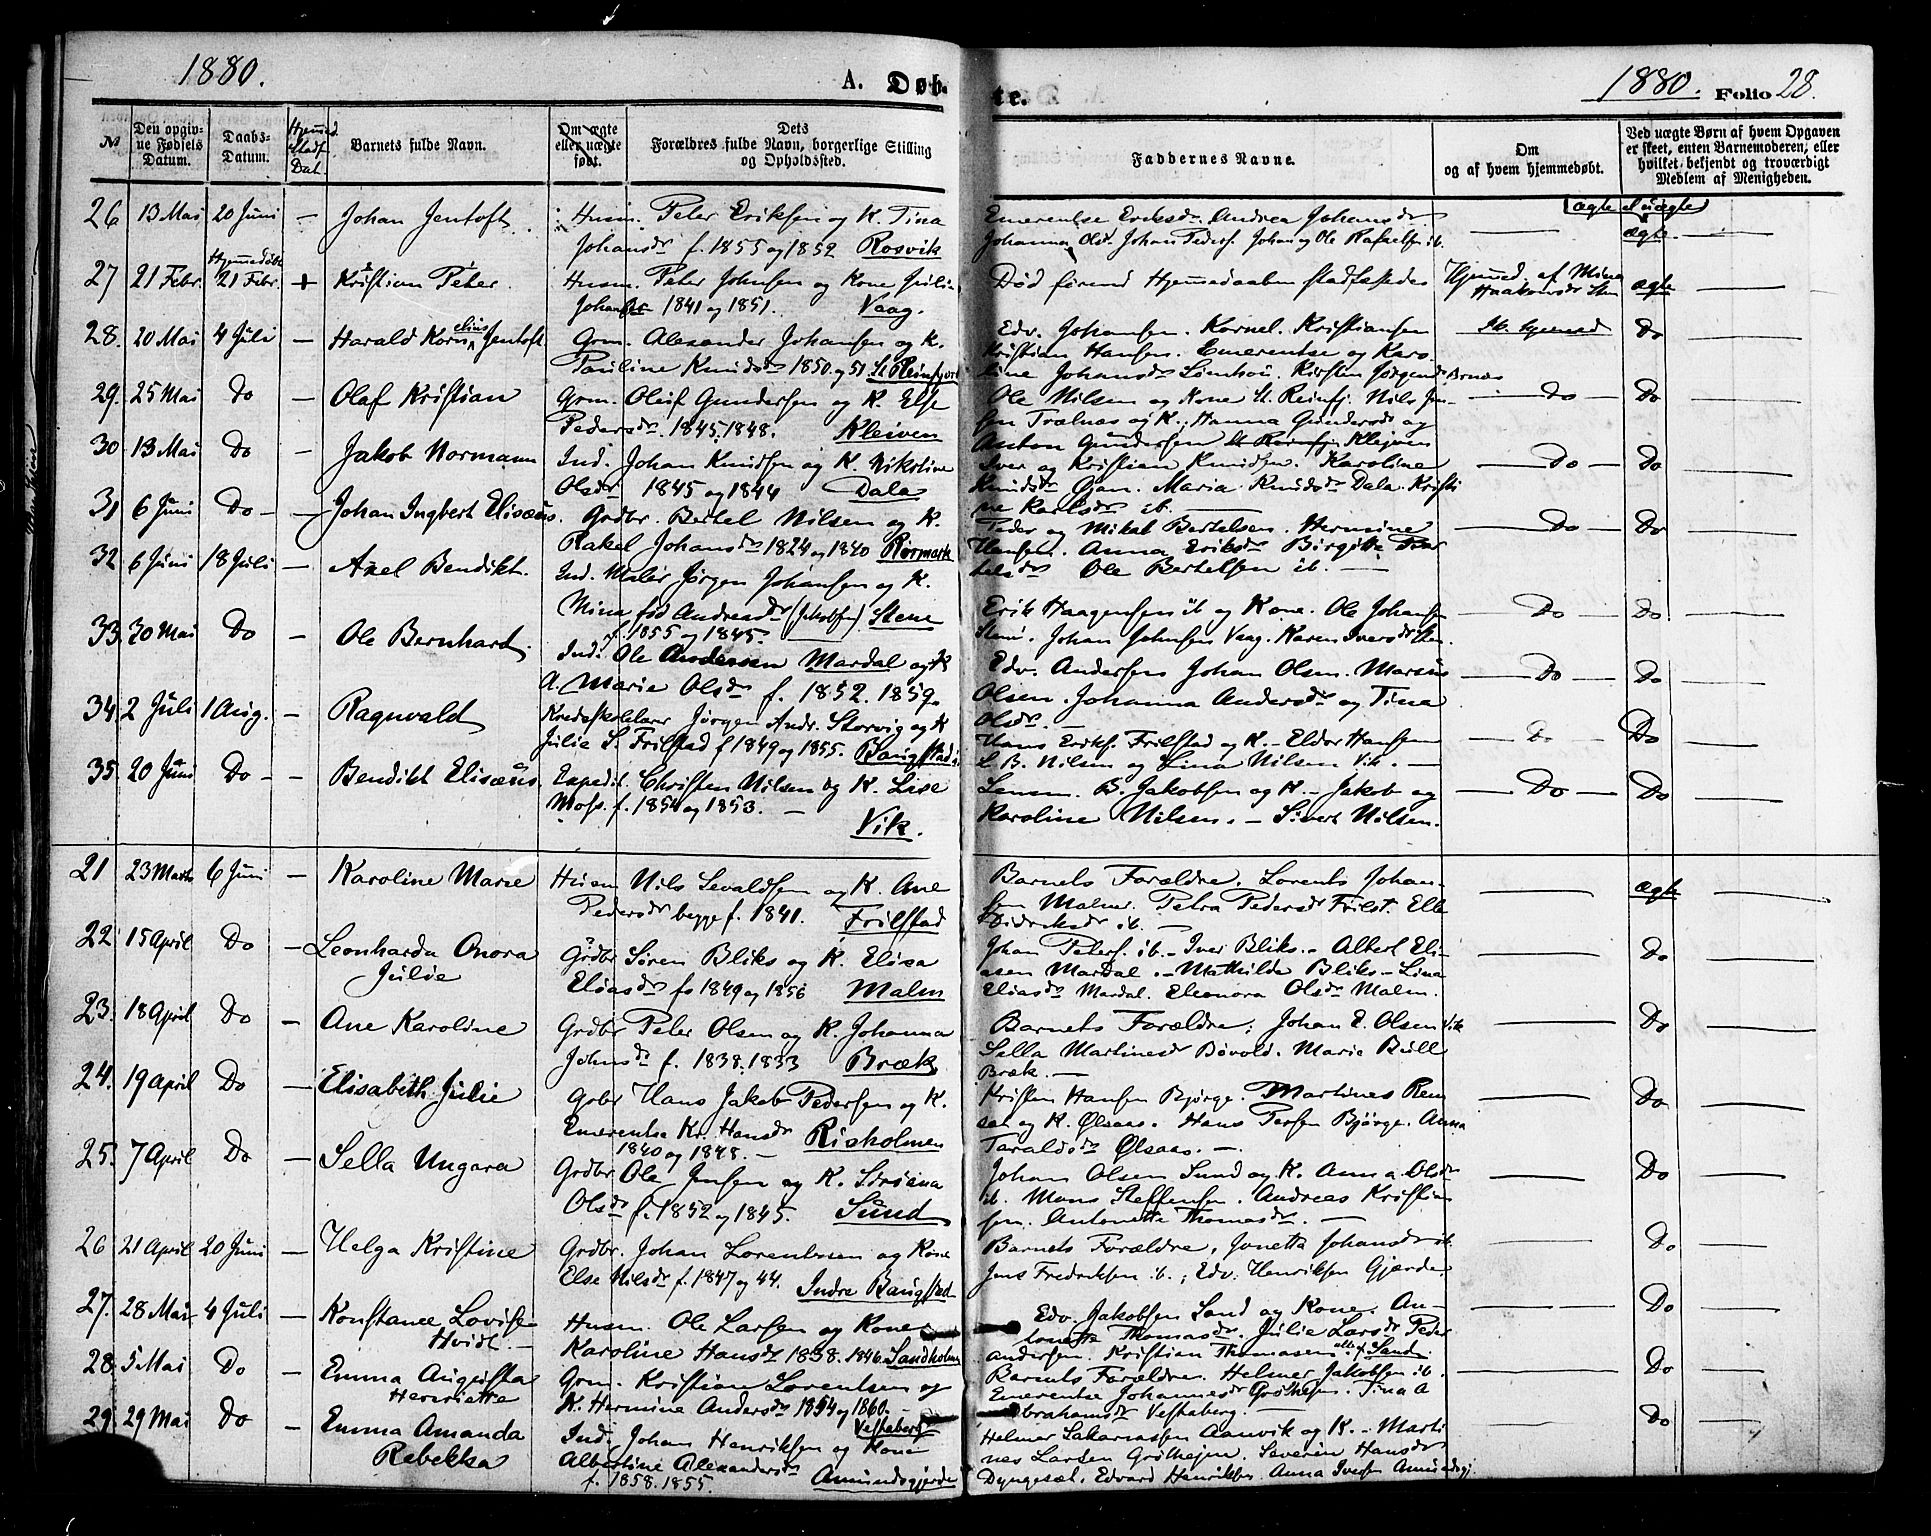 1880.
A. Døbte.
1880. Folio 28.
No
Den opgivne Fødsels Datum.
Daabs-Datum.
Hjemmed. Stadf. Dat.
Barnets fulde Navn.
Om ægte eller uægte født.
Dets Forældres fulde Navn, borgerlige Stilling og Opholdssted.
Faddernes Navne.
Om og af hvem hjemmedøbt.
Ved uægte Børn af hvem Opgaven er skeet, enten Barnemoderen, eller hvilket bekjendt og troværdigt Medlem af Menigheden.
ægte el uægte
26 13 Mai 20 Juni — Johan Jentoft Husm. Peter Eriksen og K. Tina Emerentse Eriksdr. Andrea Johansdr — ægte —
Johansdr f. 1855 og 1852 Rosvik Johanna Olsd. Johan Peders. Johan og Ole Rafaelsen ib.
27 21 Febr. Hjemmedøbt 21 Febr. + Kristian Peter. Husm. Peter Johnsen og Kone Julie Død förend Hjemmedaaben stadfæstedes Hjemmed. af Mina ægte —
1841 og 1851. Vaag.
28. 20 Mai 4 Juli — Harald Kornelius Jentoft Grm. Alexander Johansen og K. Edv. Johansen. Kornel. Kristiansen Do
Pauline Knudsdr 1850 og 51 Kristian Hansen. Emerentse og Karo-
line Johansdr
29. 25 Mai Do — Olaf Kristian Grm. Oluf Gundersen og K. Else Ole Nilsen og Kone — Do — Do
Pedersdr. 1845. 1848. Kleiven sen Trælnæs og K., Hanna Gundersdr og
Anton Gundersen
30 13 Mai Do — Jakob Normann Ind. Johan Knudsen og K. Nikoline Iver og Kristian Knudsen. Karoline — Do — Do
Olsdr 1845 og 1844 Dala Maria Knudsdr Dala. Kristi
ne Karlsdr ib.
31 6 Juni Do — — Johan Ingbert Elisæus. Grdbr. Bertel Nilsen og K. Peder og Mikal Bertelsen. Hermine — Do — Do
Rakel Johansdr 1824 og 1840 Rørmark Hansen. Anna Eriksdr Birgitte
Ole Bertelsen ib. —
32 6 Juni 18 Juli — Axel Bendikt. Ind. Maler Jørgen Johansen og K. Erik Haagensen ib og Kone. Ole Johansen — Do — Do
Mina fød Andreasdr (Jakobsen) Stene Johan Johnsen Vaag. Karen Iversdr
f. 1855 og 1845.
33. 30 Mai Do — Ole Bernhard. Ind. Ole Andersen Mardal og K Edv. Andersen Johan Olsen. — Do — Do —
A. Marie Olsdr f. 1852. 1859. Olsen. Johanna Andersdr og Tina
Olsdr. —
34. 2 Juli 1 Aug. — Ragnvald Kredsskolelærer Jørgen Andr. Storvig og K Hans Eriks. Frilstad og K. — Eldor Hansen — Do — Do —
Julie S. Frilstad f 1849 og 1855. Baugstad L. B. Nilsen og Lina Nilsen Vik. —
35. 20 Juni Do — — Bendikt Elisæus. Expedit. Christen Nilsen og K. Lise Lensm. B. Jakobsen og K. — Jakob og — Do — Do —
f. 1854 og 1853. — Vik. Karoline Nilsen. — Sivert Nilsen.
21 23 Marts 6 Juni — Karoline Marie Husm Nils Sevaldsen og K. Ane Barnets Forældre. Lorents Johan- — ægte —
Pedersdr begge f. 1841. Frilstad sen Malm. Petra Pedersdr Frilst. Elle
Didriksdr ib. —
22 15 April Do — Leonharda Onora Grdbr Søren Bliks og K. Elisa Johan Peters. ib. — Iver Bliks. — Albert Eli- — Do —
Julie Eliasdr f. 1849 og 1856 Malm asen Mardal. — Mathilde Bliks — Lina
Eliasdr Mardal. Eleonora Olsdr Malm.
23. 18 April Do — Ane Karoline Grdbr Peter Olsen og K. Johanna Barnets Forældre; Johan E. Olsen Vik — Do —
Johnsdr f. 1838. 1833 Bræk Sella Martinesdr Bøvold. Marie Bull
Bræk. —
24. 19 April Do — Elisabeth Julie Gdbr Hans Jakob Pedersen og K. Kristen Hansen Bjørge. Martines Rem — Do —
Emerentse Kr. Hansdr Risholmen og K. Ølsaas. Hans Persen Bjørge. Anna
1840 og 1848. — Taraldsdr Ølsaas. —
25. 7 April Do — Sella Ungara Grdbr Ole Jensen og K. Johan Olsen Sund og K. Anna Olsdr — Do —
Olsdr f. 1852 og 1845. Sund ib. Mons Steffensen. Andreas Kristian
sen. Antonette Thomasdr. —
26 21 April 20 Juni — Helga Kristine Grdbr. Johan Lorentsen og Kone Barnets Forældre, Jonetta Johansdr ib. — Do —
Else Nilsdr f. 1847 og 44. Indre Baugstad Jens Fredriksen ib.; Edv. Henriksen Gjerde.
27. 28 Mai 4 Juli — Konstance Lovise Husm. Ole Larsen og Kone Edv. Jakobsen Sand og Kone. An- — Do —
Hvidt. — Karoline Hansdr 1838. 1846. Sandholm Thomasdr. Julie Larsdr Peder
Andersen. Kristian Thomasen alle f. Sand.
28. 5 Mai Do — Emma Augusta Grm. Kristian Lorentsen og Barnets Forældre. Helmer Jakobsen ib. — Do —
Henriette K. Hermine Andersdr 1854 og 1860. — Emerentse Johannesdr Grøthejen. Tina A
Vestaberg Abrahamsdr Vestaberg. —
29. 29 Mai Do — Emma Amanda Ind. Johan Henriksen og Kone Helmer Sakariassen Aanvik og K. — Marti — Do —
Rebekka Albertine Alexandersdr Amundsgjerde nes Larsen Grøthejen. Severin Hansdr
f. 1858. 1855. Dyngesæt. Edvard Henriksen. Anna Iversen Amundsgj.